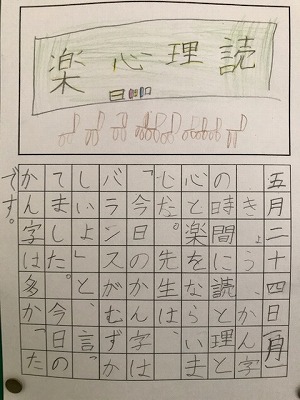 読理心楽
五月二十四日(月)
きょう、かん字
の時間に読と理と
心と楽をならいま
した。先生は、
「今日のかん字は
バランスがむずか
しいよ」と、言っ
てました。今日の
かん字は多かった
です。